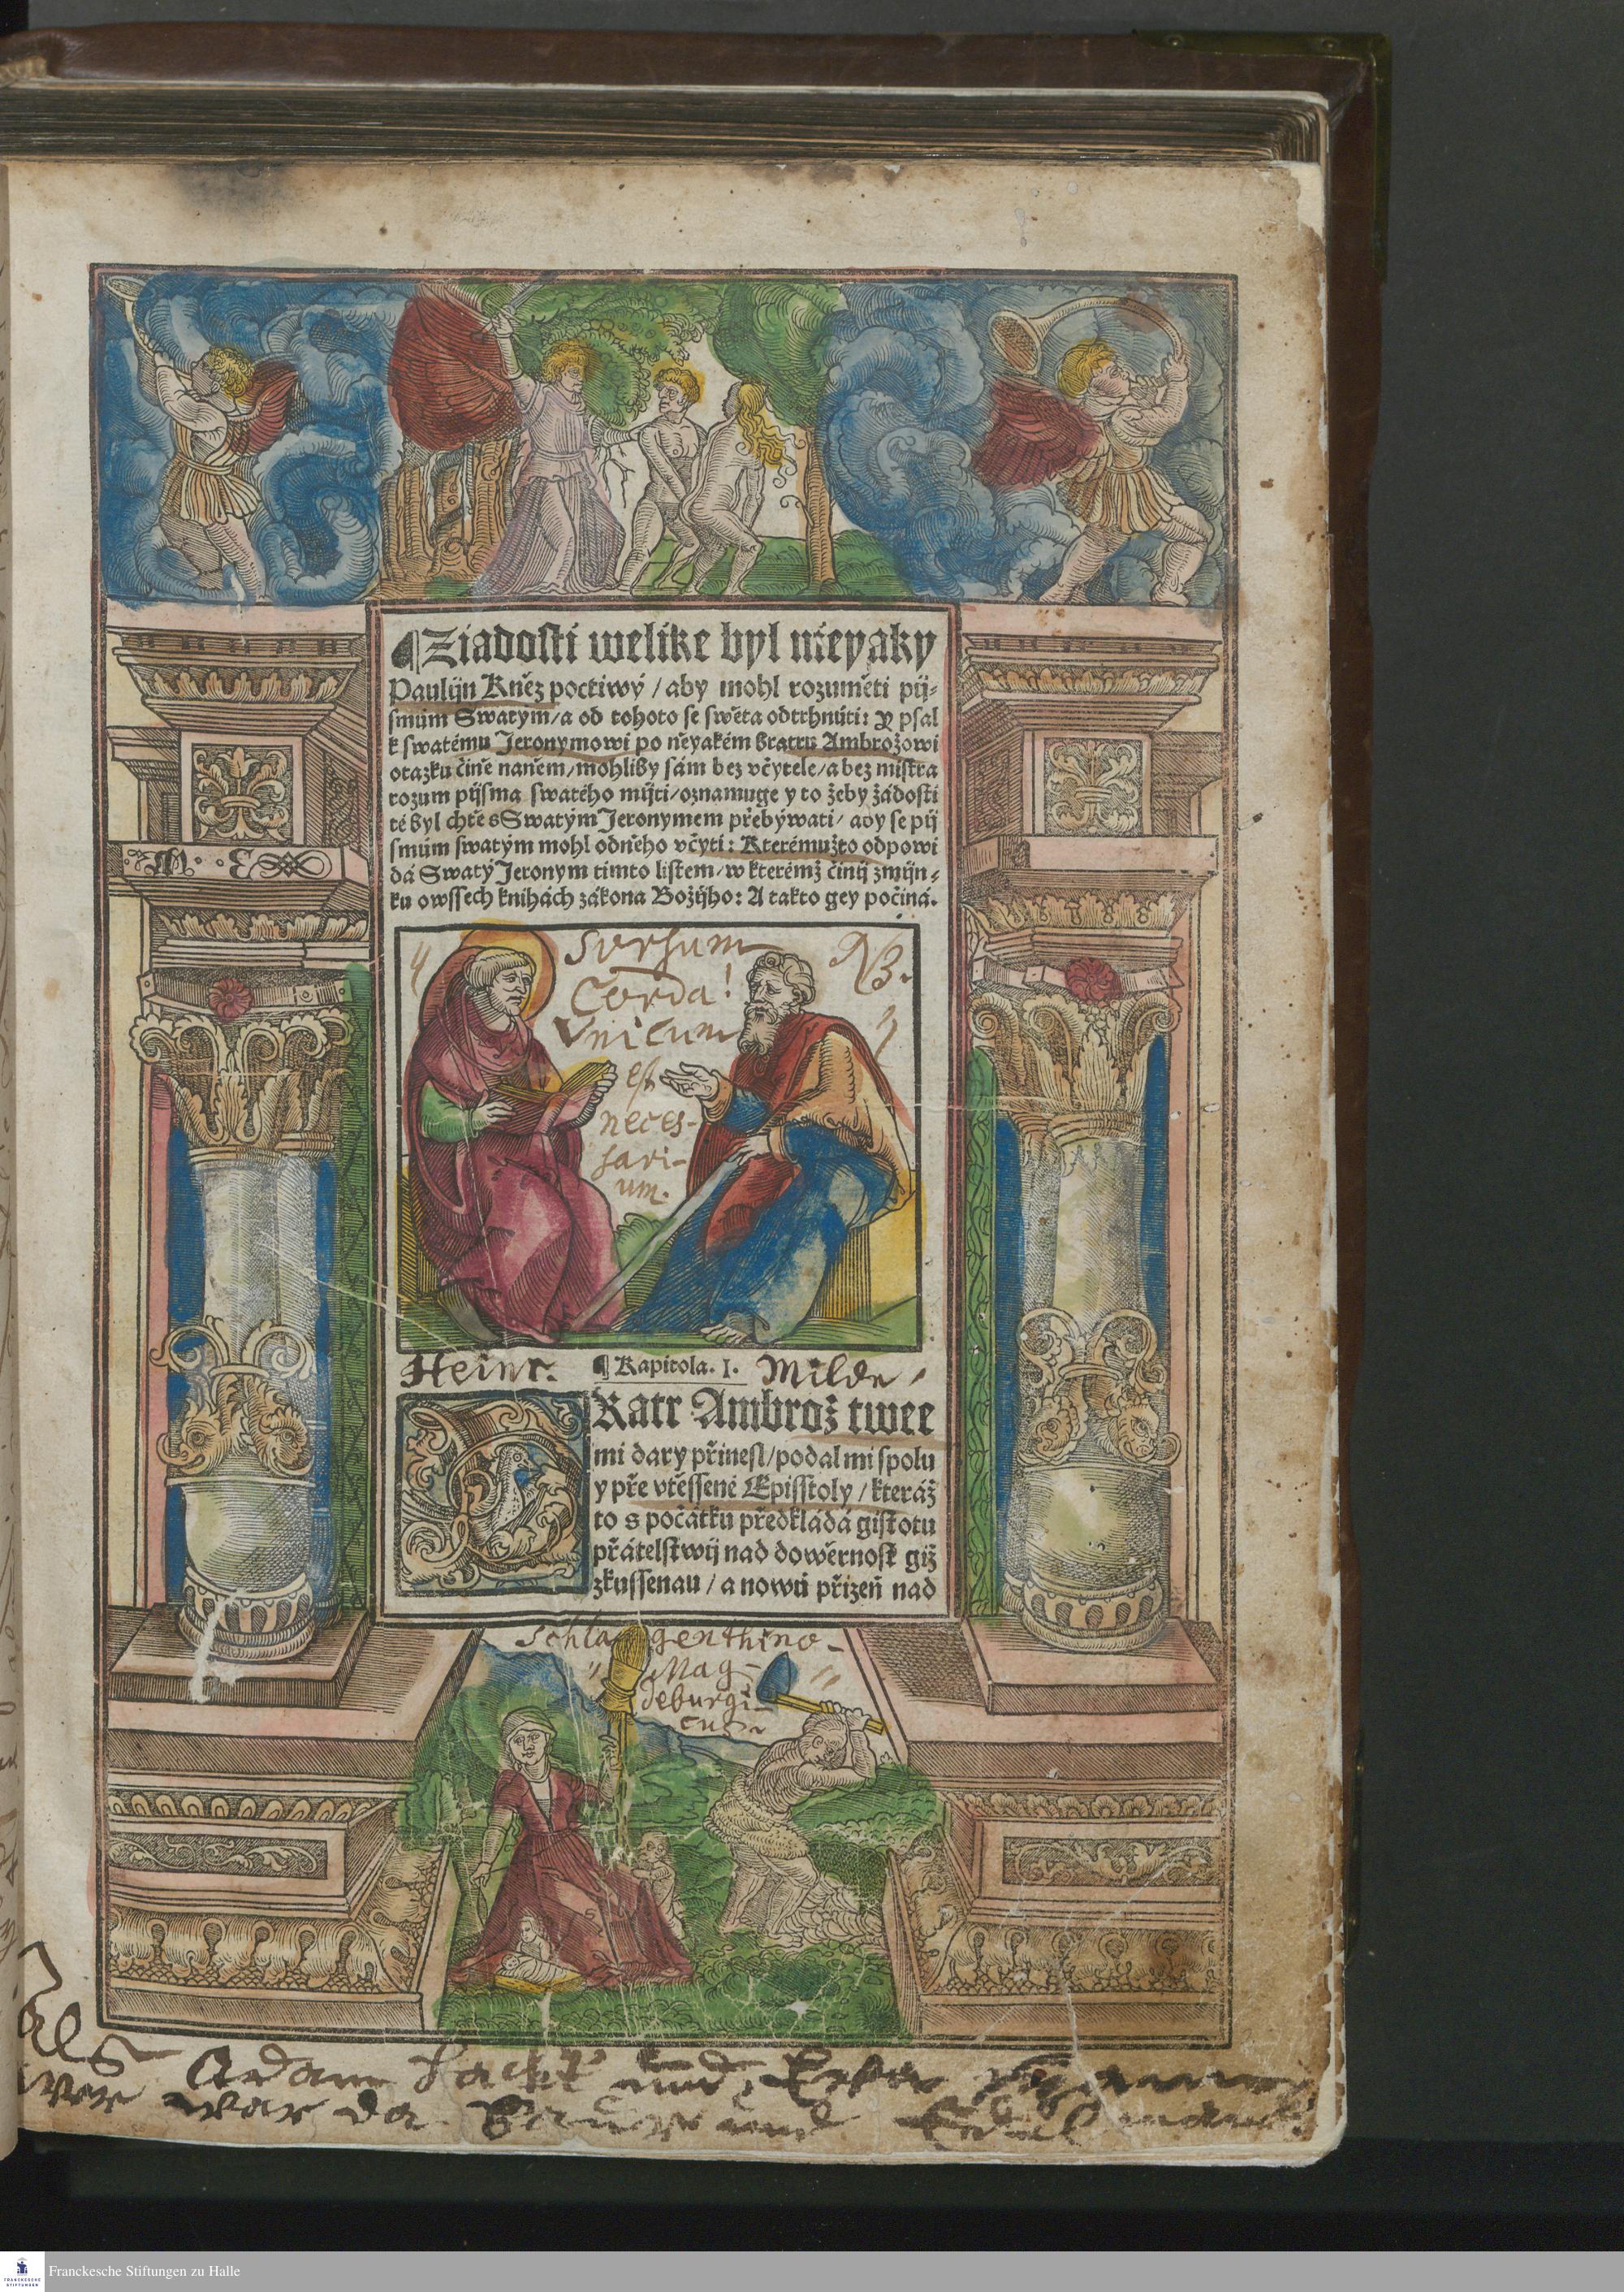 ¶Ziadosti welike byl nieyaky
Paulijn Kněz poctiwý / aby mohl rozuměti pij-
smům Swatým / a od tohoto se swěta odtrhnúti: Y psal
k swatému Jeronymowi po něyakém bratru Ambrožowi
otazku čině naněm / mohliby sám bez včytele / a bez mistra
rozum pijsma swatého mijti / oznamuge y to žeby žádosti
té byl chtě s Swatým Jeronymem přebýwati / aby se pij
smům swatým mohl odněho včyti: Kterémužto odpowi
dá Swatý Jeronym tímto listem / w kterémž činij zmijn-
ku owssech knihách zákona Božijho: A takto gey počíná.
M. E
Sursum
Corda!
NB.
Vnicum
est
neces-
sari-
um.
Heinr. ¶ Kapitola. I. Milde,
BRatr Ambrož twee
mi dary přinesl / podal mi spolu
y pře vtěssené Episstoly / kteráž
to s počátku předkládá gistotu
přátelstwij nad dowěrnost giž
zkussenau / a nowú přízeň nad
Schlagenthino-
Mag-
deburgi-
cus.
Als Adam hackt und Eva spann
wer war da Bauer und Edelmann
Franckesche Stiftungen zu Halle
FRANCKESCHE
STIFTUNGEN